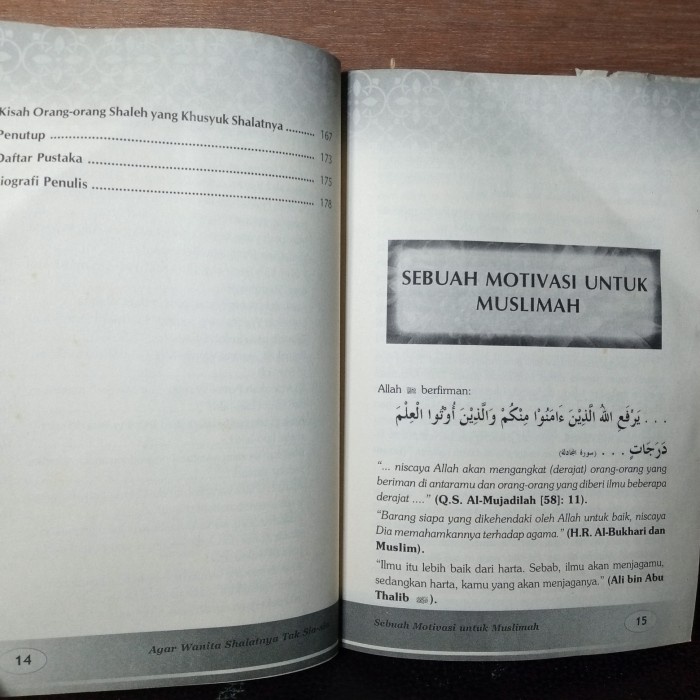 Kisah Orang-orang Shaleh yang Khusyuk Shalatnya .......... 167
Penutup .......... 173
Daftar Pustaka .......... 175
iografi Penulis .......... 178
14
Agar Wanita Shalatnya Tak
SEBUAH MOTIVASI UNTUK
MUSLIMAH
Allah ﷻ berfirman:
... يَرْفَعِ اللهُ الَّذِيْنَ ءَامَنُوْا مِنْكُمْ وَالَّذِيْنَ أُوْتُوا الْعِلْمَ
دَرَجَاتٍ ... (سورة المجادلة)
"... niscaya Allah akan mengangkat (derajat) orang-orang yang
beriman di antaramu dan orang-orang yang diberi ilmu beberapa
derajat ...." (Q.S. Al-Mujadilah [58]: 11).
"Barang siapa yang dikehendaki oleh Allah untuk baik, niscaya
Dia memahamkannya terhadap agama." (H.R. Al-Bukhari dan
Muslim).
"Ilmu itu lebih baik dari harta. Sebab, ilmu akan menjagamu,
sedangkan harta, kamu yang akan menjaganya." (Ali bin Abu
Thalib ).
Sebuah Motivasi untuk Muslimah
15